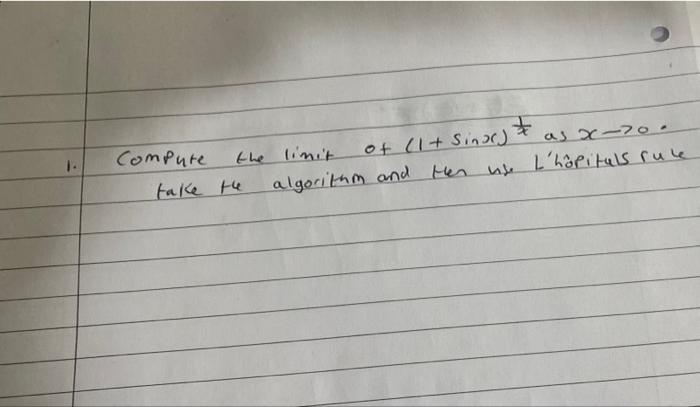 1. Compute the limit of (1 + sinx)^1/x as x->0.
take the algorithm and then use L'hôpitals rule